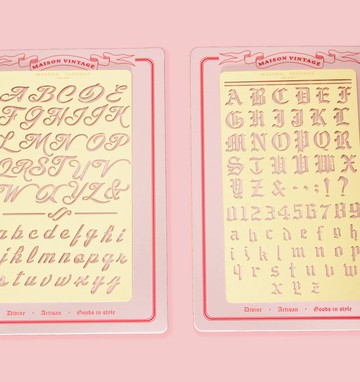 MAISON VINTAGE
MAISON VINTAGE
A B C D E
F G H I J K
L M N O P
Q R S T U V
W X Y Z &
a b c d e f g h i
j k l m n o p q r
s t u v w x y z
Divine • Artisan • Goods in style
MAISON VINTAGE
MAISON VINTAGE
A B C D E F
G H I J K L
M N O P Q R
S T U V W X
Y Z & - . : ! ?
0 1 2 3 4 5 6 7 8 9
a b c d e f g h
i j k l m n o p
q r s t u v w
x y z
Divine • Artisan • Goods in style